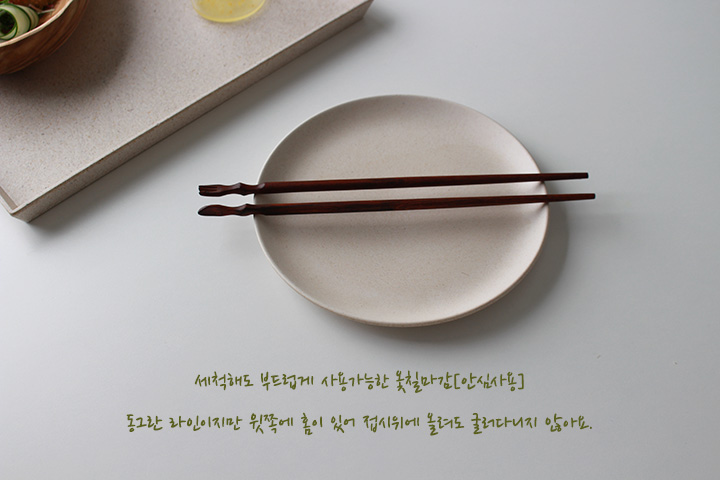 세척해도 부드럽게 사용가능한 옻칠마감[안심사용]
동그란 라인이지만 윗쪽에 홈이 있어 접시위에 올려도 굴러다니지 않아요.